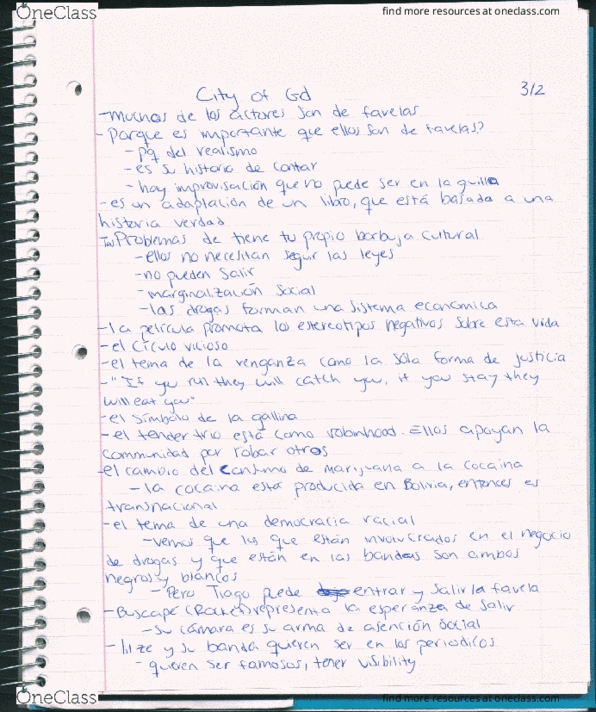 OneClass
find more resources at oneclass.com
City of Gd
3/2
-Muchos de los actores son de favelas
-Porque es importante que ellos son de favelas?
-pq del realismo
-es su historia de contar
-hay improvisación que no puede ser en la
-es un adaptación de un libro, que está basada a una
historia verdad
Problemas de tiene tu propio borbuja cultural
-ellos no necesitan seguir las leyes
-no pueden salir
-marginalización social
-las drogas forman una sistema economica
-la película promota los estereotipos negativos sobre esta vida
-el círculo vicioso
-el tema de la venganza como la sola forma de justicia
-"If you run they will catch you, if you stay they
will eat you"
-el símbolo de la gallina
-el tender trio está como robinhood. Ellos apoyan la
communidad por robar otros
-el cambio del consumo de marijuana a la cocaína
-la cocaína está producida en Bolivia, entonces es
transnacional
-el tema de una democracia racial
-vemos que los que están involucrados en el negocio
de drogas y que están en las bandas son ambos
negros y blancos
-Pero Tiago puede entrar y salir la favela
-Buscape (Rocket) representa la esperanza de salir
-Su cámara es su arma de asención social
-lil ze y su banda quieren ser en los periodicos
-quieren ser famosos, tener visibility
OneClass
find more resources at oneclass.com